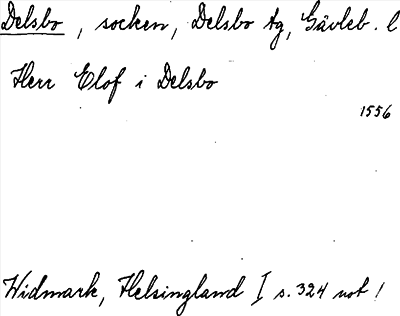 Delsbo, socken, Delsbo tg, Gävleb. l
Herr Elof i Delsbo
1556
Widmark, Helsingland I s. 324 not 1